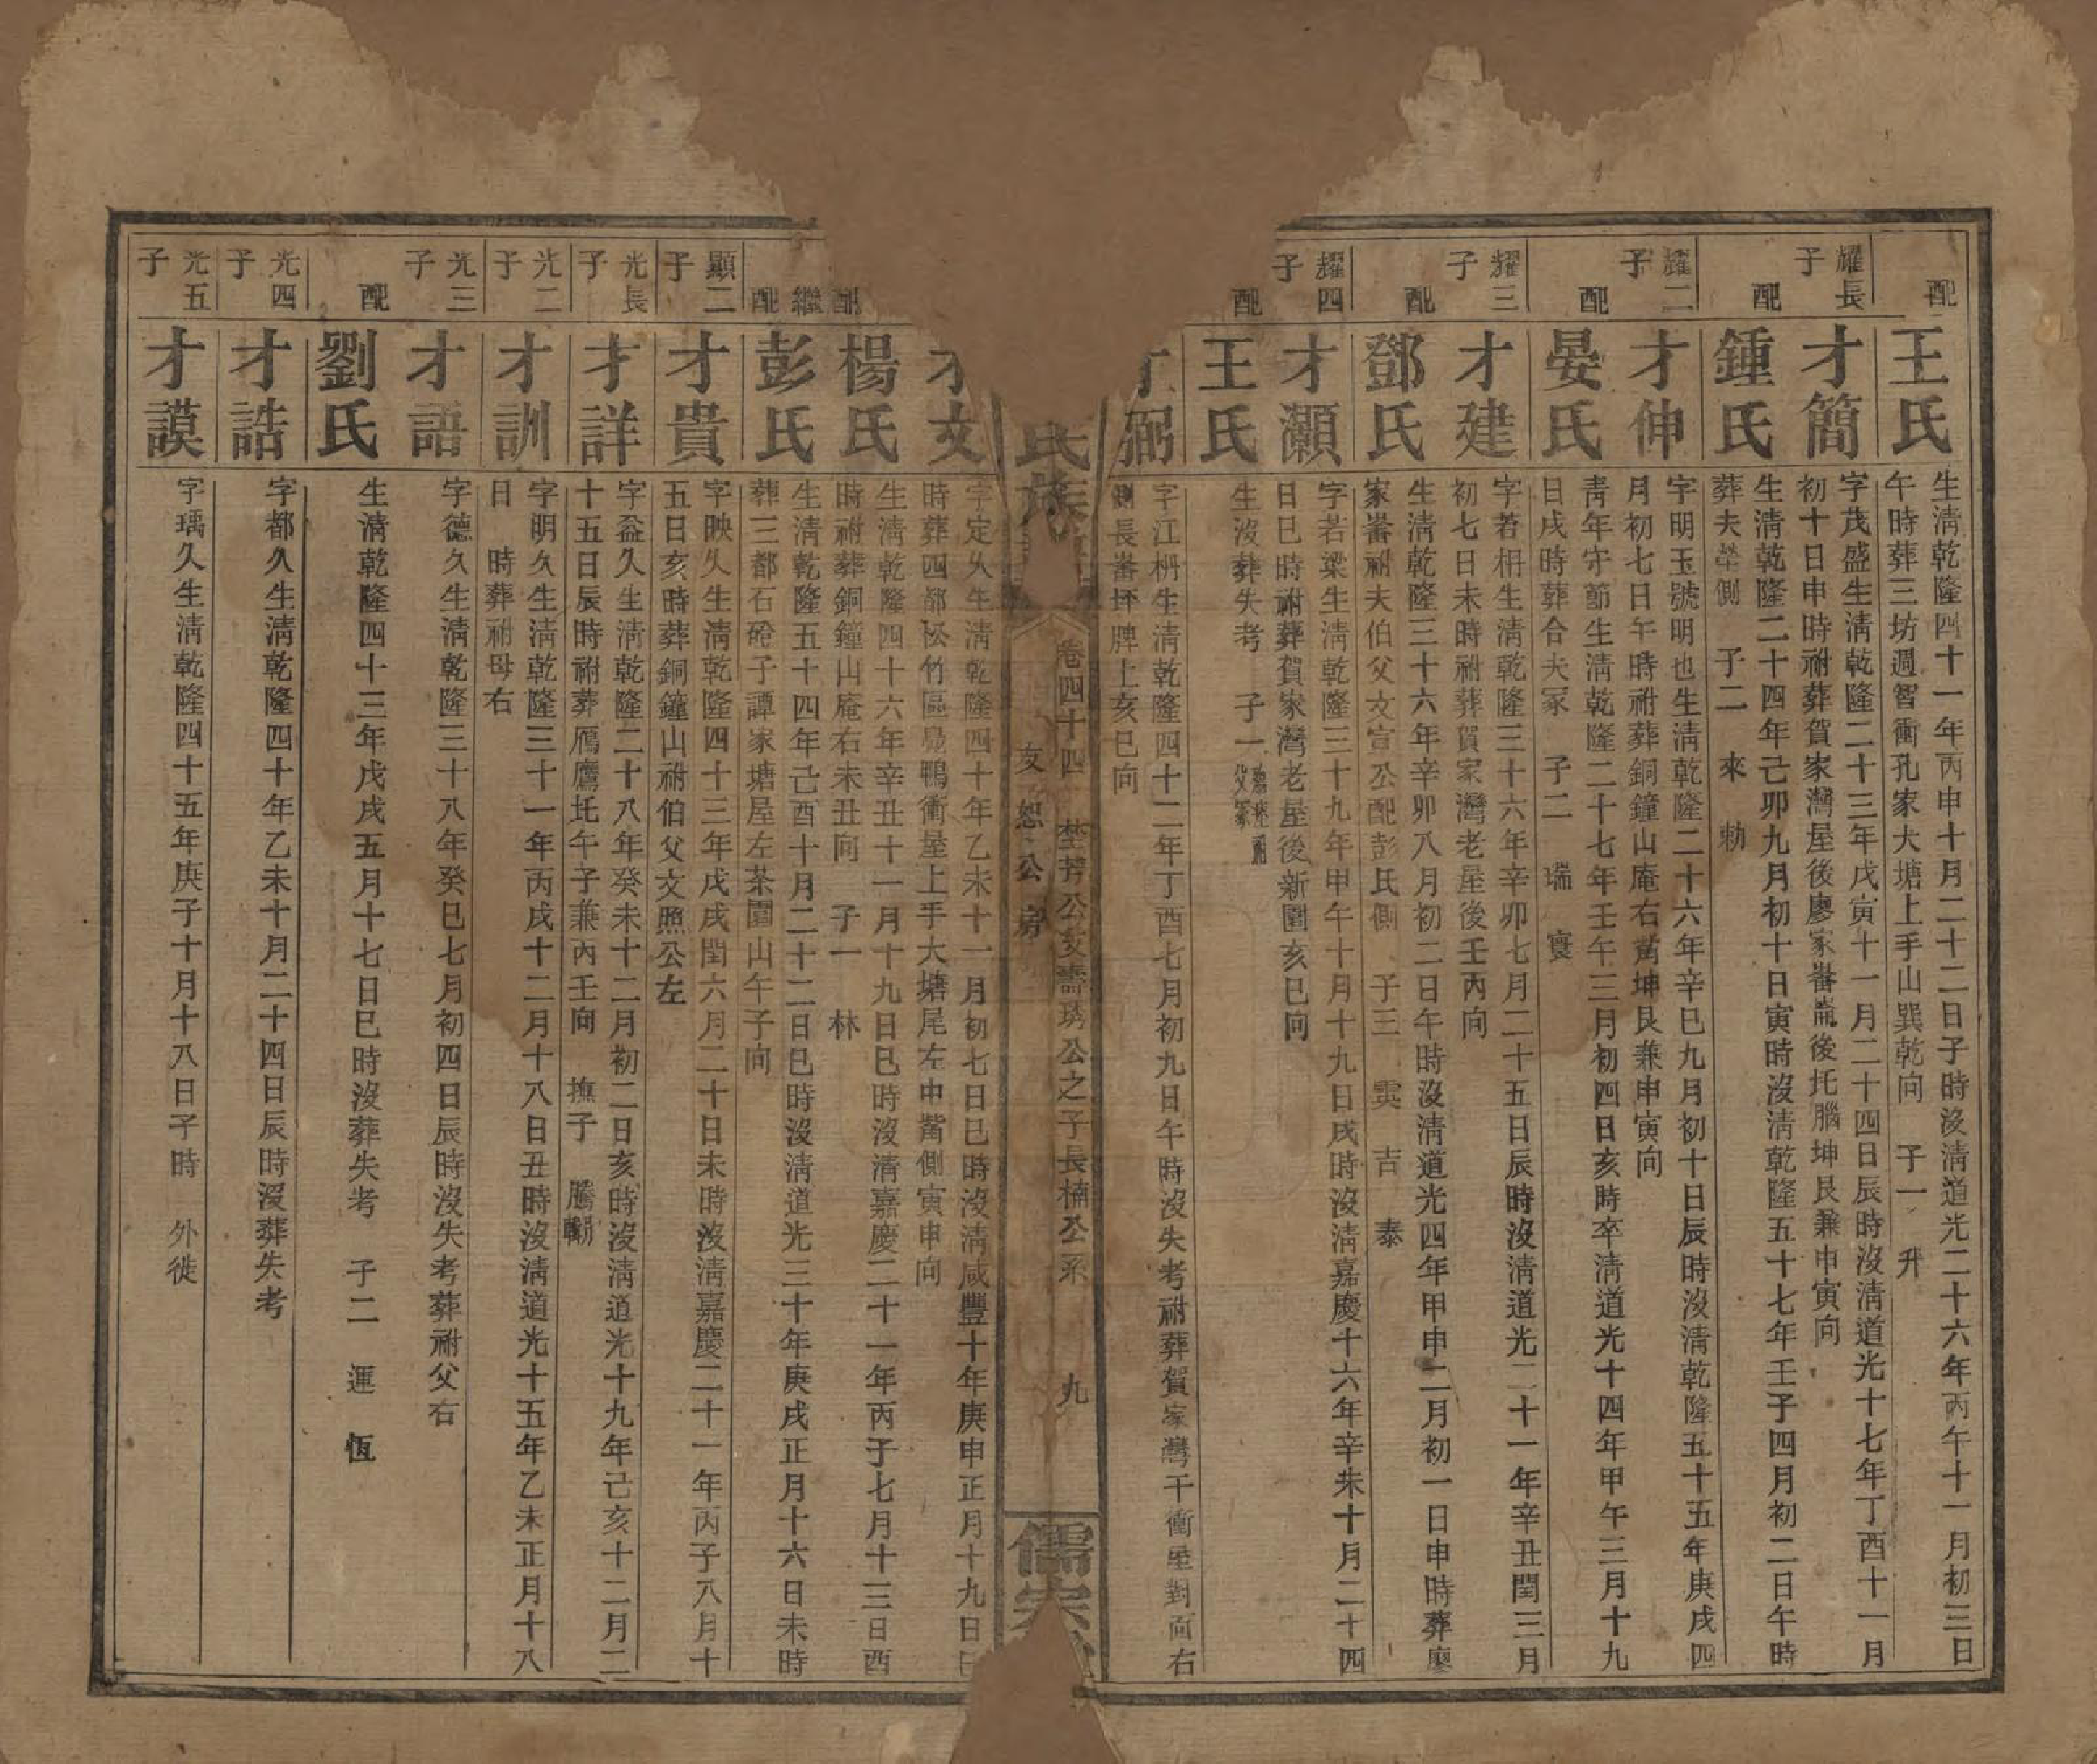 配
王氏
生淸乾隆四十一年丙申十月二十二日子時没淸道光二十六年丙午十一月初三日
午時葬三坊週智衝孔家大塘上手山巽乾向　子一　升
耀長子
才簡
字茂盛生淸乾隆二十三年戊寅十一月二十四日辰時没淸道光十七年丁酉十一月
初十日申時祔葬賀家灣屋後廖家畨嵩後托腦坤艮兼申寅向
配
鍾氏
生淸乾隆二十四年己卯九月初十日寅時没淸乾隆五十七年壬子四月初二日午時
葬夫塋側　子二　來　勅
耀二子
才伸
字明玉號明也生淸乾隆二十六年辛巳九月初十日辰時没淸乾隆五十五年庚戌四
月初七日午時祔葬銅鐘山庵右嵩坤艮兼申寅向
配
晏氏
靑年守節生淸乾隆二十七年壬午三月初四日亥時卒淸道光十四年甲午三月十九
日戌時葬合夫冢　子二　瑞　寔
耀三子
才建
字若枏生淸乾隆三十六年辛卯七月二十五日辰時没淸道光二十一年辛丑閏三月
初七日未時祔葬賀家灣老屋後壬丙向
配
鄧氏
生淸乾隆三十六年辛卯八月初二日午時没淸道光四年甲申二月初一日申時葬廖
家畨祔夫伯父文宣公配彭氏側　子三　吉　泰
耀四子
才灝
字若梁生淸乾隆三十九年甲午十月十九日戌時没淸嘉慶十六年辛未十月二十四
日巳時祔葬賀家灣老屋後新園亥巳向
配
王氏
生没葬失考　子一
弼
字江枬生淸乾隆四十二年丁酉七月初九日午時没失考祔葬賀家灣干衝屋對面右
側長畨坪牌上亥巳向
氏族
卷四十四　埜芳公支壽琇公之子長楠公系　九
友恕公房
儒宗
文
字定久生淸乾隆四十年乙未十一月初七日巳時没淸咸豐十年庚申正月十九日
時葬四都松竹區鳧鴨衝屋上手大塘尾左申嵩側寅申向
配
楊氏
生淸乾隆四十六年辛丑十一月十九日巳時没淸嘉慶二十一年丙子七月十三日酉
時祔葬銅鐘山庵右未丑向　子一　林
繼配
彭氏
生淸乾隆五十四年己酉十月二十二日巳時没淸道光三十年庚戌正月十六日未時
葬三都石磴子譚家塘屋左茶園山午子向
顯二子
才貴
字映久生淸乾隆四十三年戊戌閏六月二十日未時没淸嘉慶二十一年丙子八月十
五日亥時葬銅鐘山祔伯父文照公左
光長子
才詳
字益久生淸乾隆二十八年癸未十二月初二日亥時没淸道光十九年己亥十二月二
十五日辰時祔葬鴈鷹圫午子兼丙壬向　撫子　騰
光二子
才訓
字明久生淸乾隆三十一年丙戌十二月十八日丑時没淸道光十五年乙未正月十八
日　時葬祔母右
光三子
才語
字德久生淸乾隆三十八年癸巳七月初四日辰時没失考葬祔父右
配
劉氏
生淸乾隆四十三年戊戌五月十七日巳時没葬失考　子二　運　恆
光四子
才誥
字都久生淸乾隆四十年乙未十月二十四日辰時没葬失考
光五子
才謨
字瑀久生淸乾隆四十五年庚子十月十八日子時　外徙